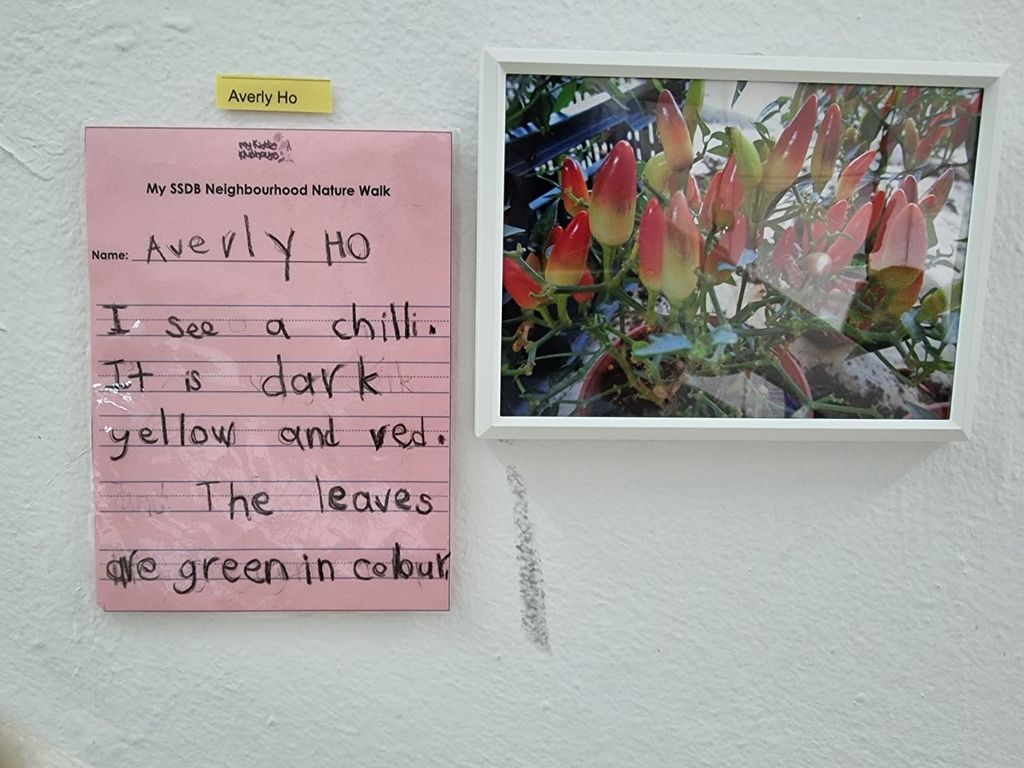 Averly Ho
my Kiddie
Klubhouse
My SSDB Neighbourhood Nature Walk
Name: Averly HO
I see a chilli.
It is dark
yellow and red.
The leaves
are green in colour